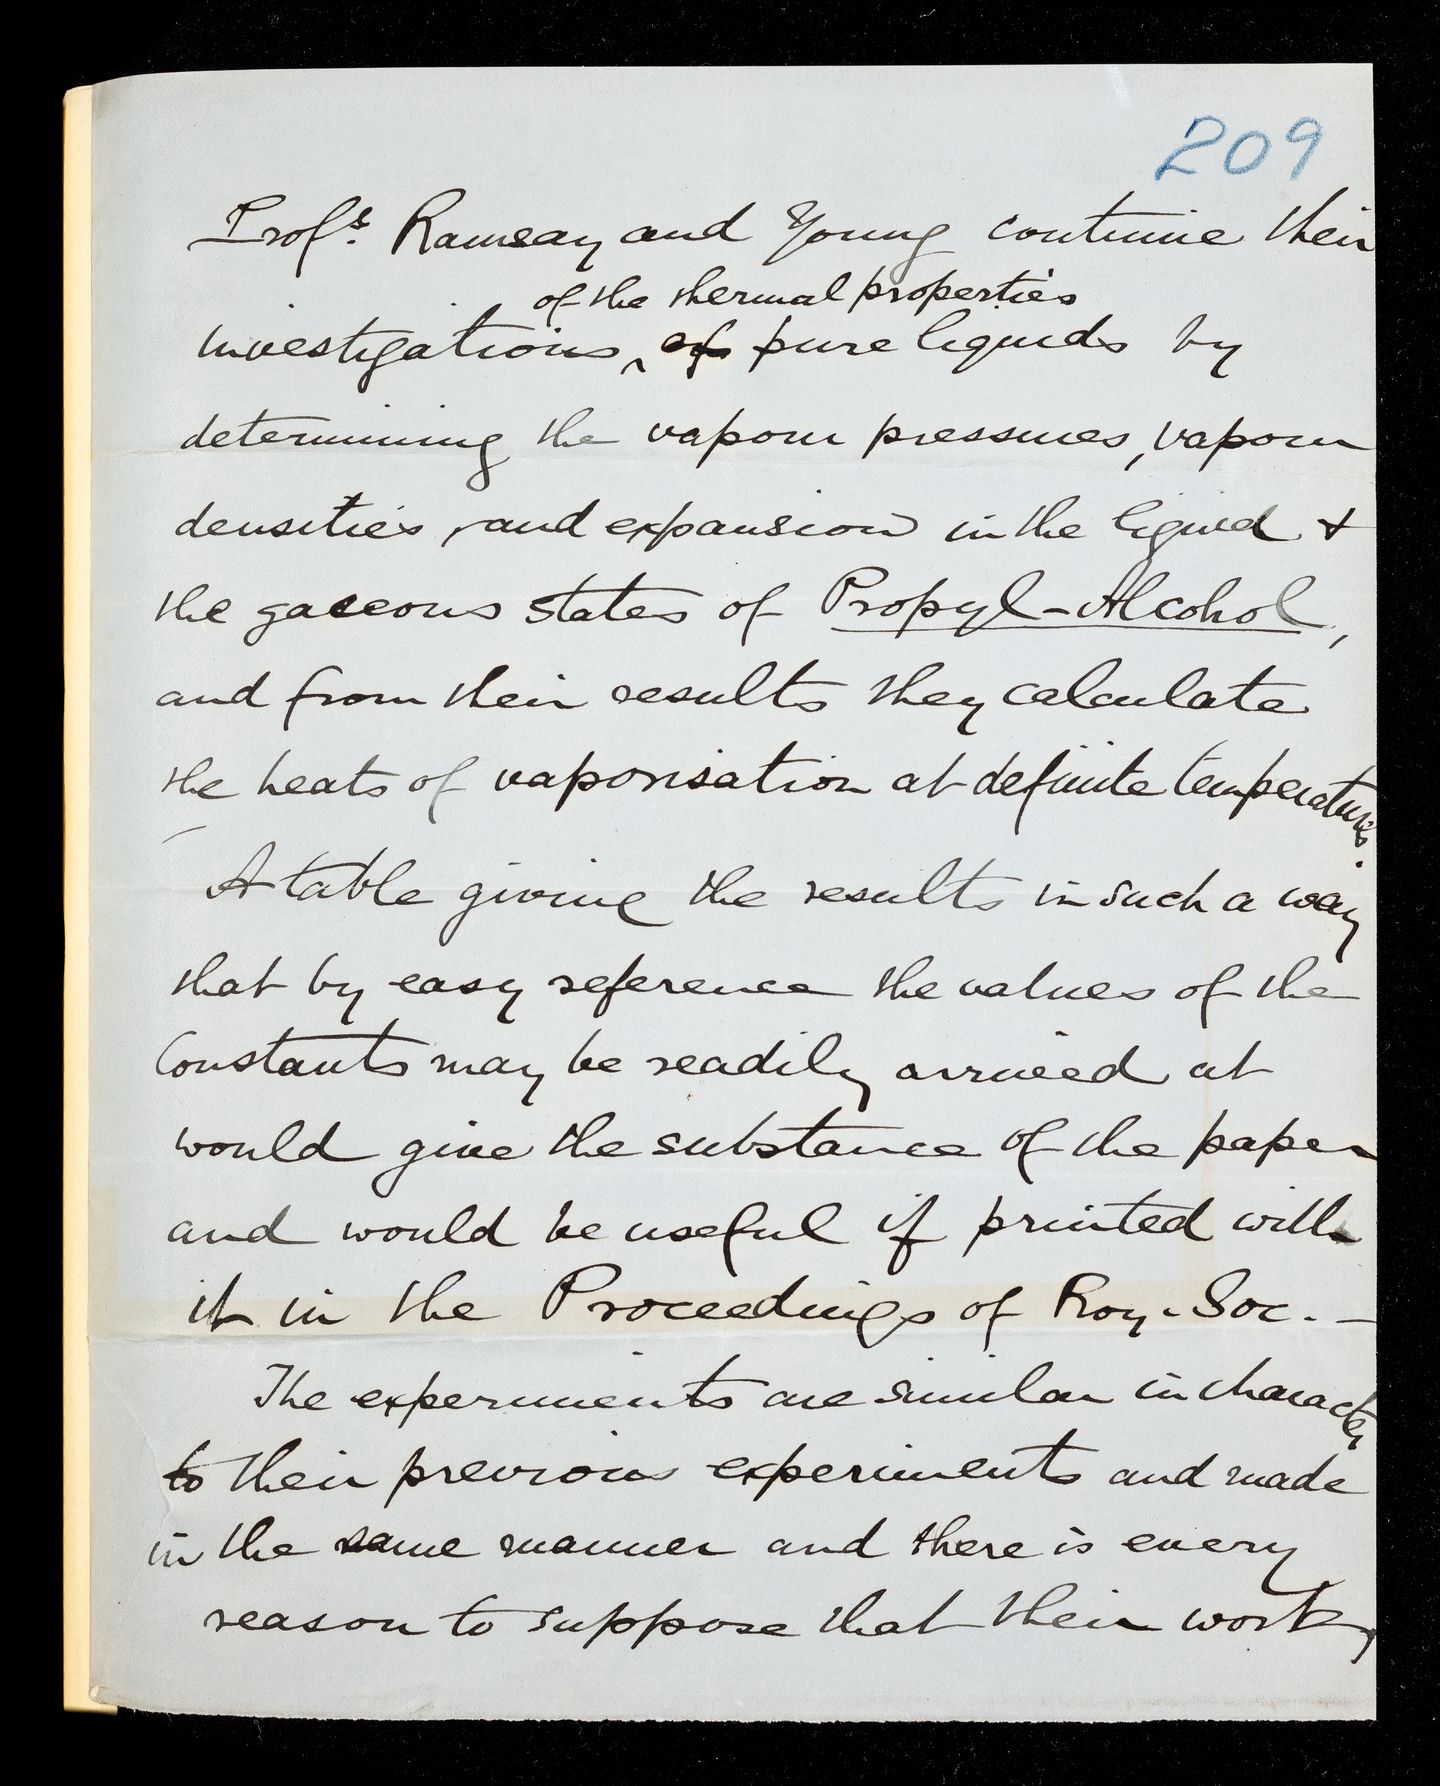 209
Profs. Ramsay and Young continue their
of the thermal properties
investigations ^ of pure liquids by
determining the vapour pressures, vapour
densities, and expansion in the liquid &
the gaseous states of Propyl-Alcohol,
and from their results they calculate
the heats of vaporisation at definite temperatures.
A table giving the results in such a way
that by easy reference the values of the
Constants may be readily arrived at
would give the substance of the paper
and would be useful if printed with
it in the Proceedings of Roy. Soc. —
The experiments are similar in character
to their previous experiments and made
in the same manner and there is every
reason to suppose that their work,